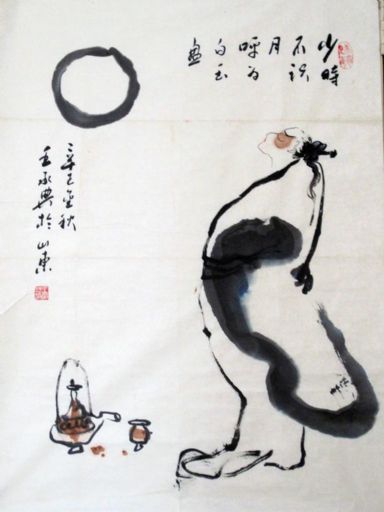 少時
不识
月
呼为
白玉
盘
辛巳金秋
王於山東